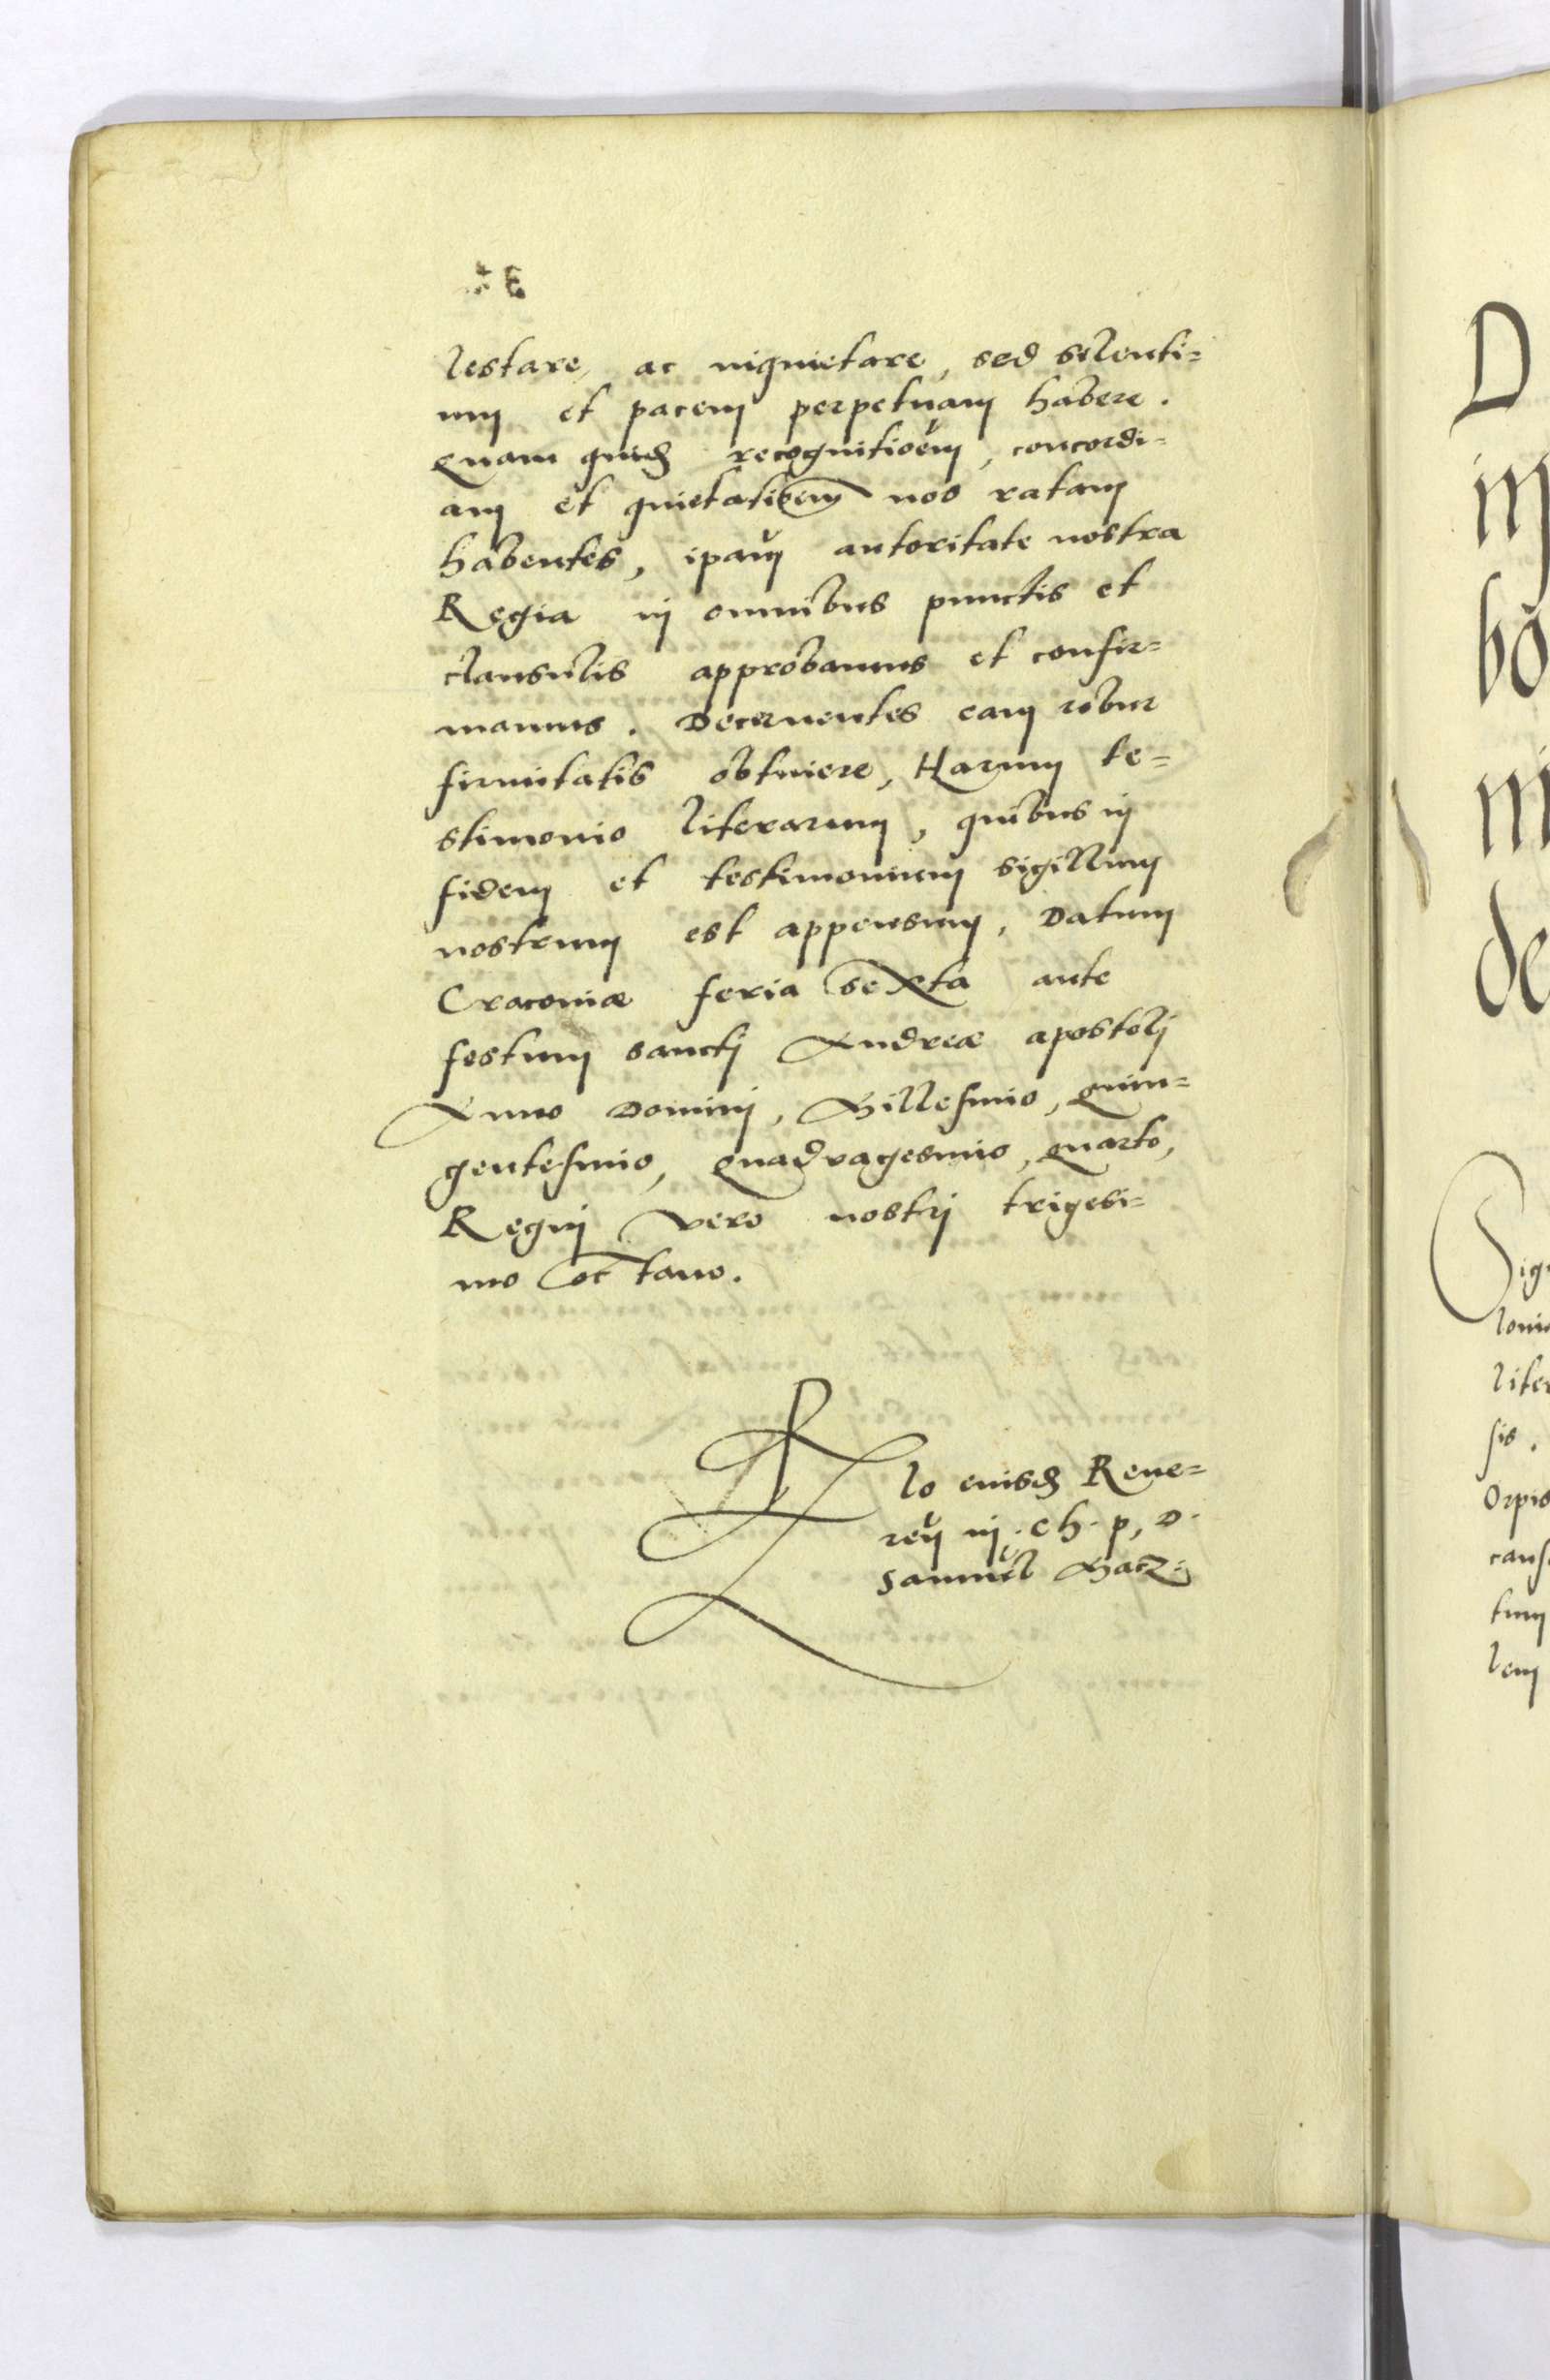 lestare, ac inquietare, sed silenti=
um et pacem perpetuam habere.
Quam quidē recognitioēm, concordi=
am et quietatioēm nos ratam
habentes, ipam autoritate nostra
Regia in omnibus punctis et
clausulis approbamus et confir=
mamus. Decernentes eam robur
firmitatis obtinere, Harum te=
stimonio literarum, quibus in
fidem et testimonium sigillum
nostrum est appensum, Datum
Cracouiæ feria sexta ante
festum sancti Andreæ apostoli
Anno Domini, Millesimo, quin=
gentesimo, quadragesimo, quarto,
Regni vero nostri trigesi=
mo octauo.
Rlo eiusd Reue=
ren in ch. p, D.
Samuel Macz:
D
in
bo
de
Sig
loni
lite
sis.
Orpis
caus
tum
lem